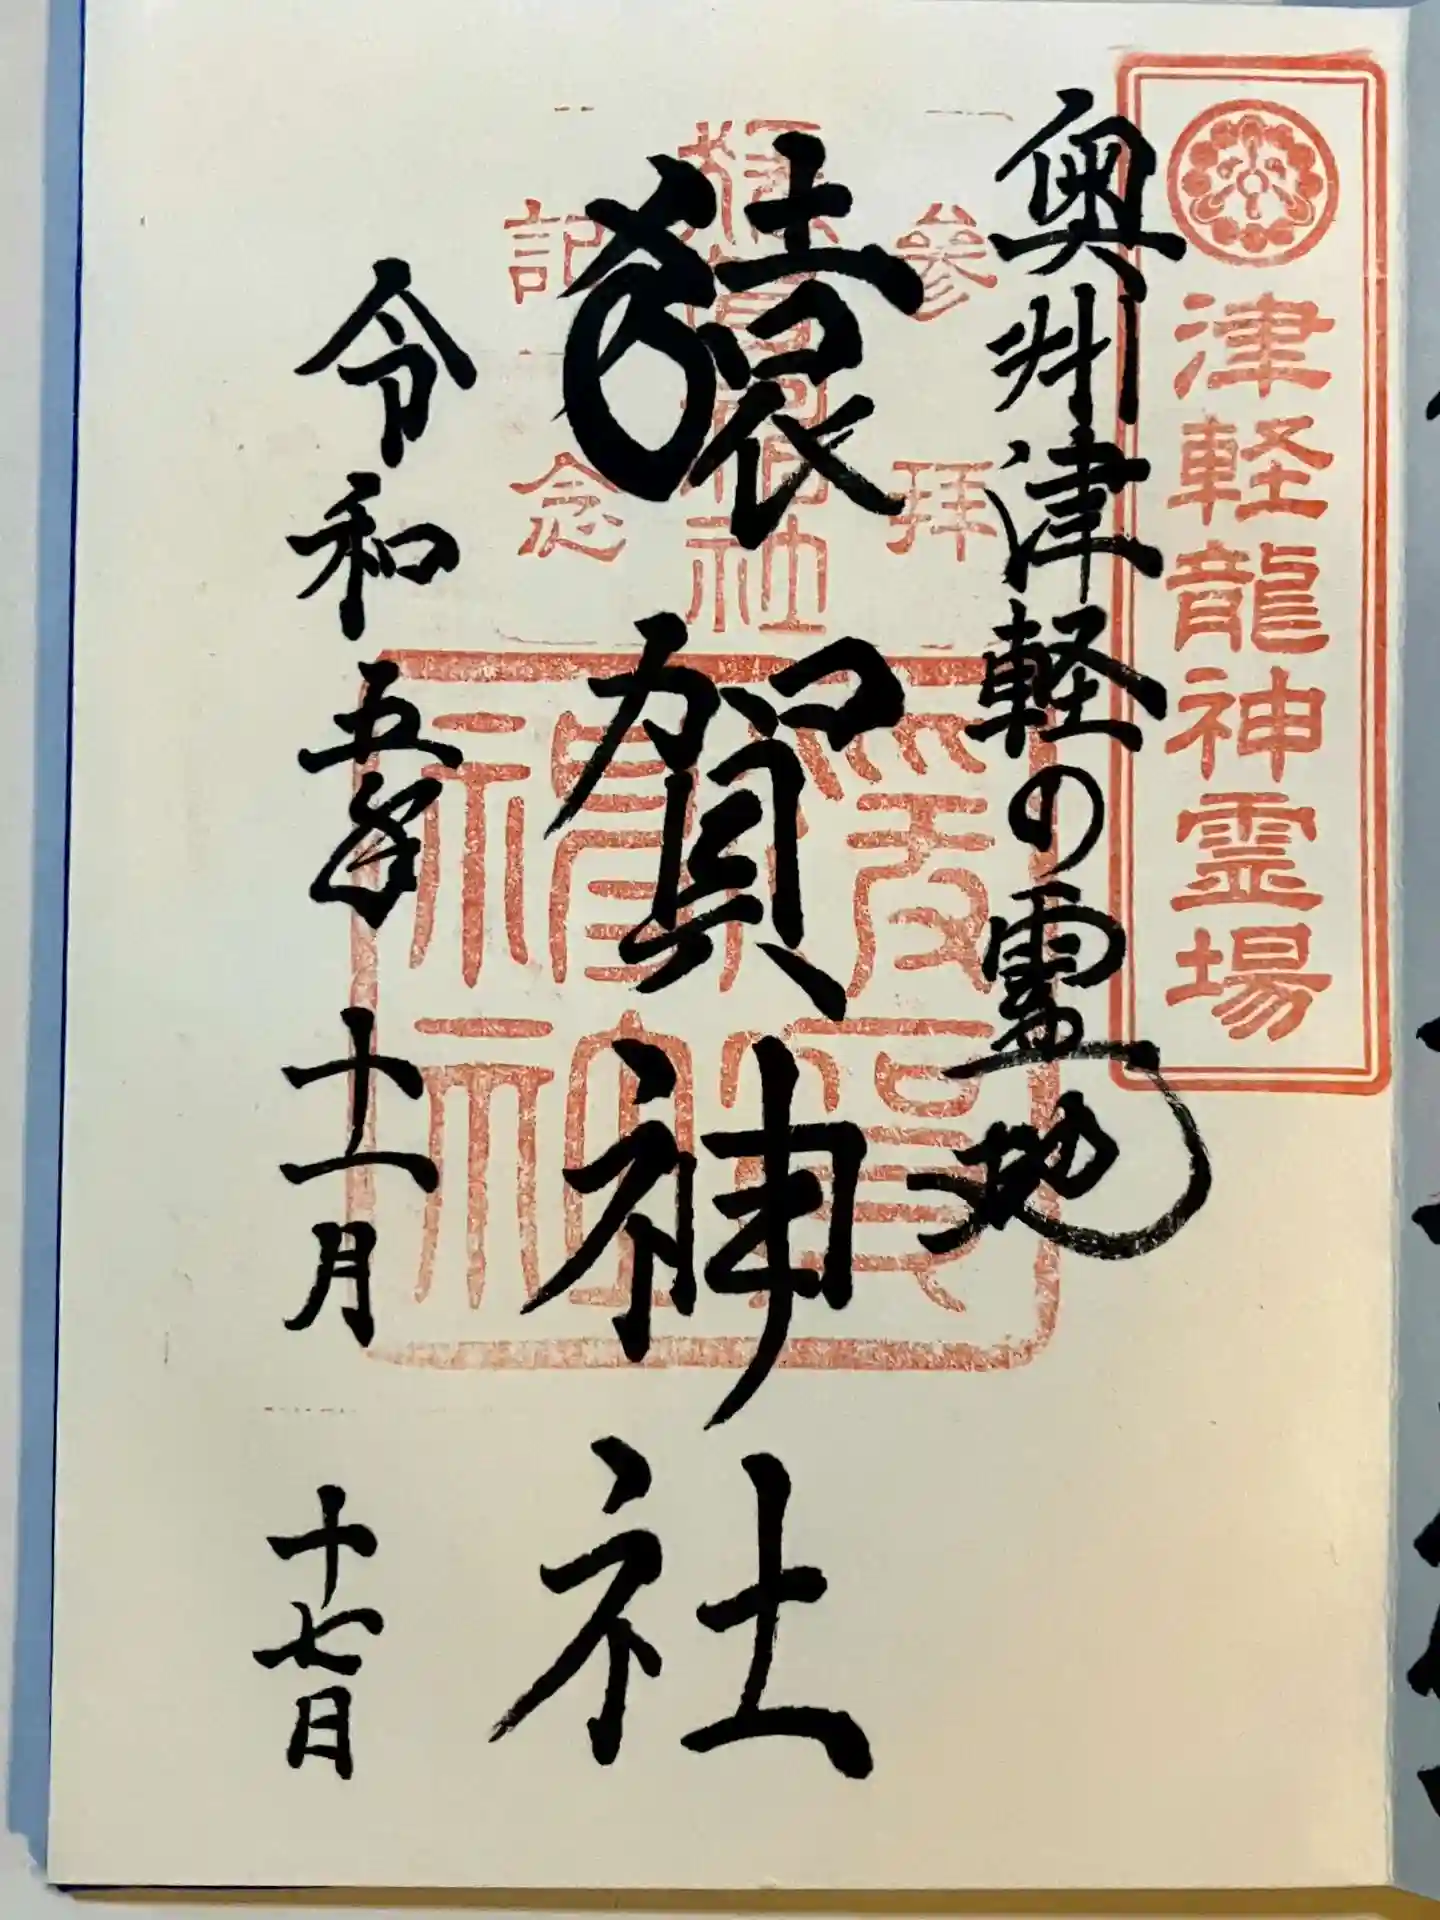 津軽龍神霊場
奥州津軽の霊地
参拝
猿賀神社
記念
令和五年十一月十七日